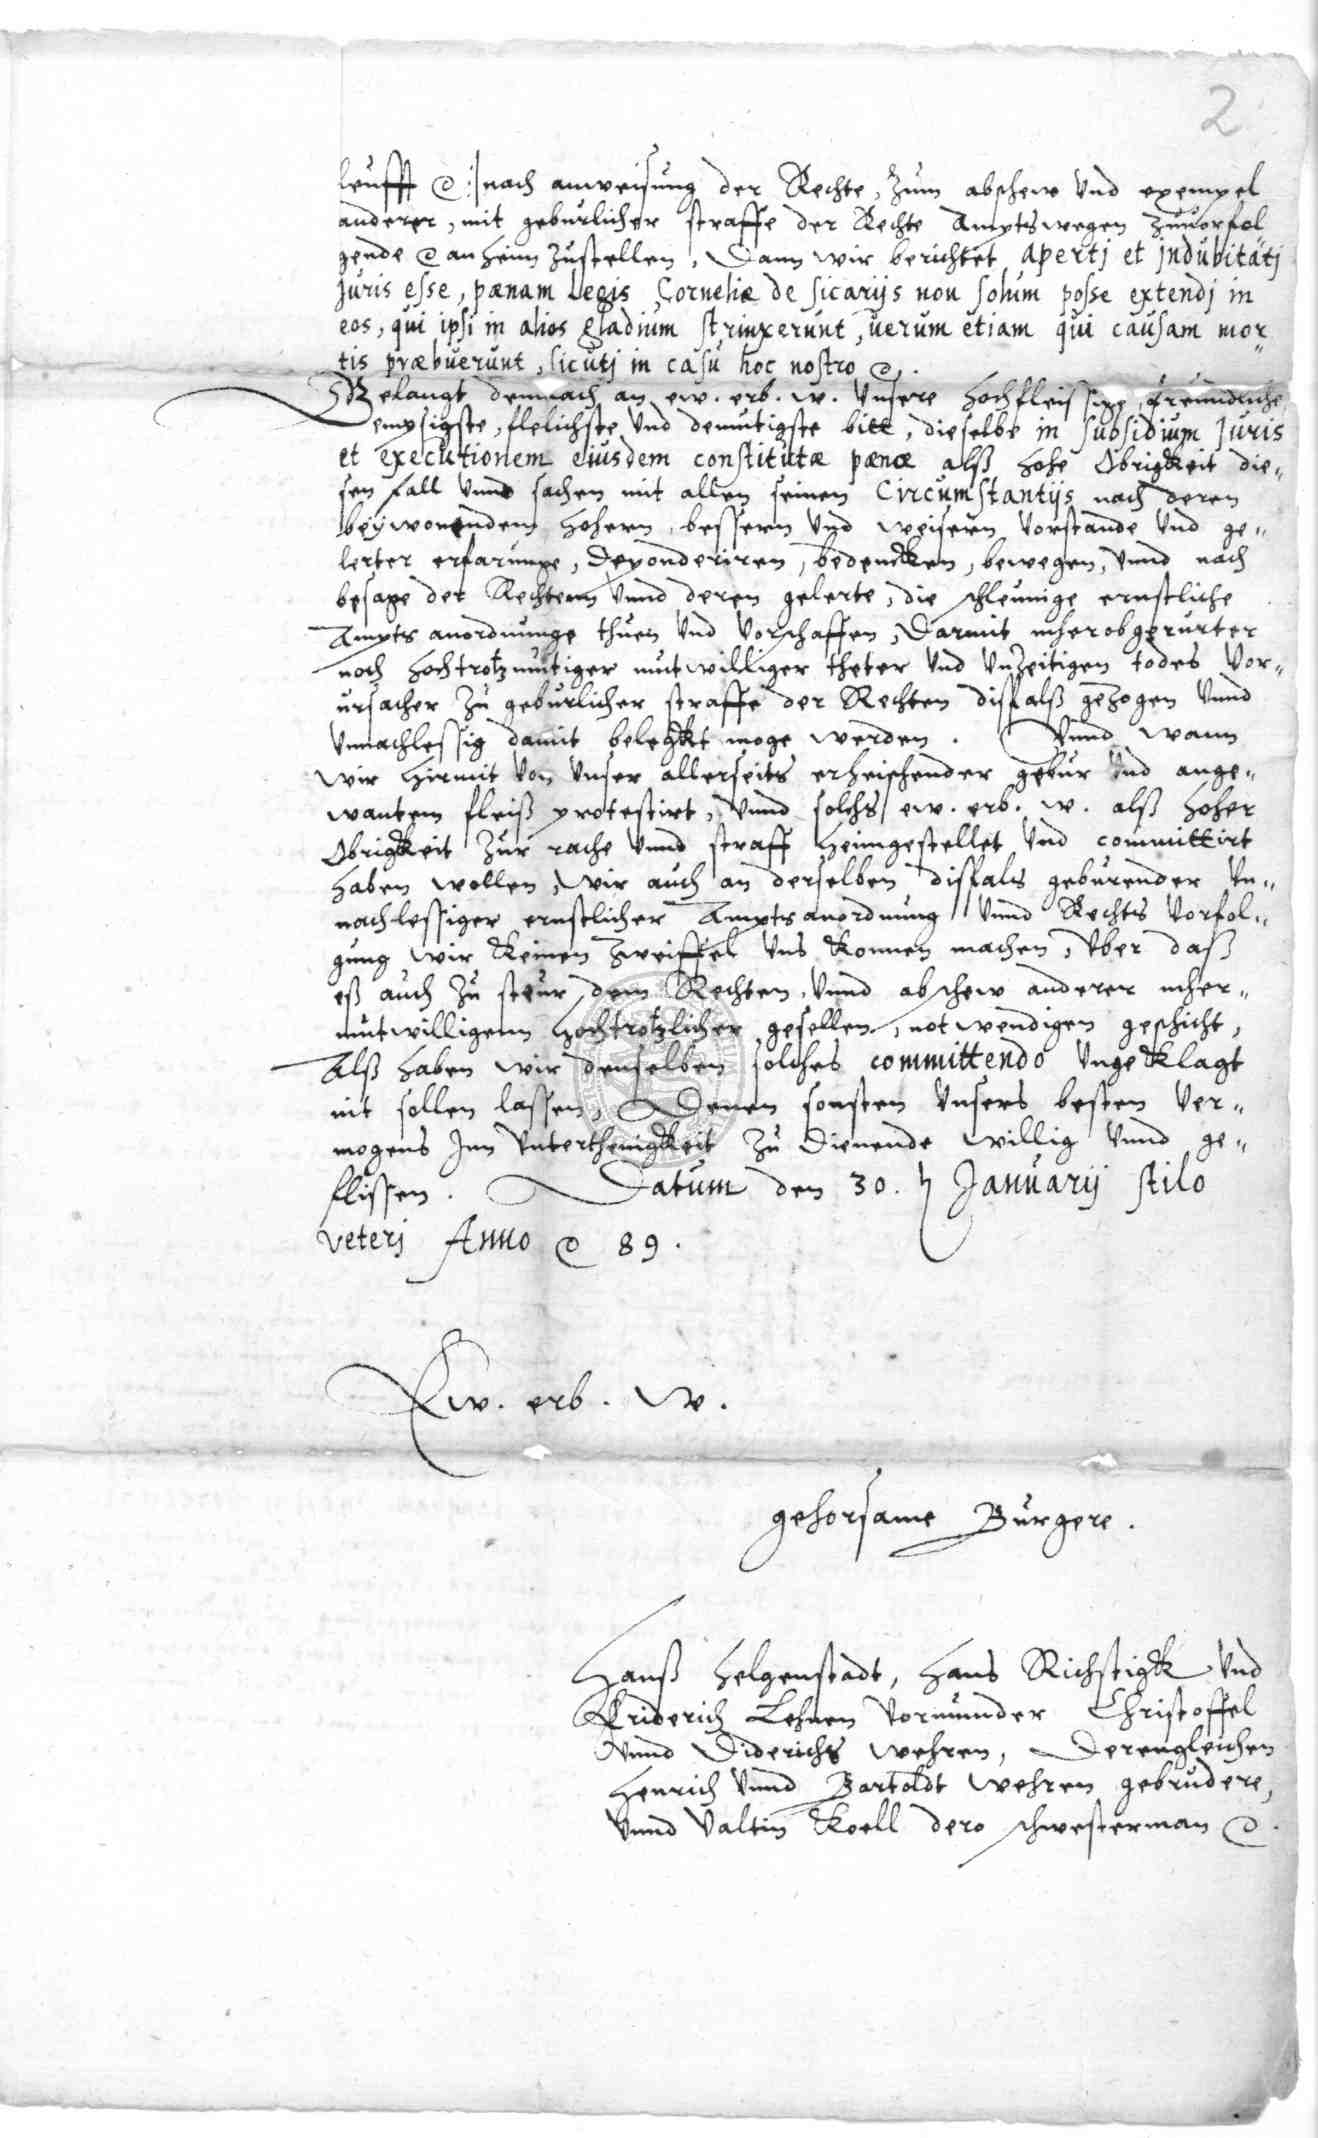 2
leufft ꝛc :| nach anweisung der Rechte, zum abschew vnd exempel
anderer, mit geburlicher straffe der Rechte Ampts wegen zuuorfol
gende ꝛc an heim zustellen, Dann wir berichtet apertj et jndubitatj
Juris esse, pœnam Legis Corneliæ de sicarijs non solum posse extendj in
eos, qui ipsi in alios gladium strinxerunt, uerum etiam qui causam mor„
tis præbuerunt, sicutj in casu hoc nostro ꝛc.
Gelangt demnach an ew. erb. w. vnsere hochfleissige, freundliche
empsigste, flelichste vnd demutigste bitt, dieselbe in subsidium Juris
et executionem eiusdem constitutæ pœnæ alß hohe Obrigkeit die„
sen fall vnnd sachen mit allen seinen Circumstantijs nach deren
beÿwonendem hohern, bessern vnd weisern vorstande vnd ge„
lerter erfarunge, deponderiren, bedencken, bewegen, vnnd nach
besage der Rechtenn vnnd deren gelerte, die schleunige ernstliche
Ampts anordnunge thuen vnd vorschaffen, Darmit mherobgerurter
noch hochtrotzmutiger mutwilliger theter vnd vnzeitigen todes vor„
ursacher zu geburlicher straffe der Rechten disfalß gezogen vnnd
vnnachlessig damit belegkt moge werden. Vnnd wann
wir hirmit von vnser allerseits erheischender gebur vnd ange„
wantem fleiß protestirt, vnnd solchs ew. erb. w. alß hoher
Obrigkeit zur rache vnnd straff heimgestellet vnd committirt
haben wollen, wir auch an derselben disfals geburender vn„
nachlessiger ernstlicher Ampts anordnung vnnd Rechts vorfol„
gung wir keinen zweiffel vns konnen machen, Vber daß
eß auch zu steur dem Rechten, vnnd abschew anderer mher„
mutwilligenn hochtrotzlicher gesellen, notwendigen geschicht,
Alß haben wir denselben solches committendo vngeklagt
nit sollen lassen, Denen sonsten vnsers besten ver„
mogens Inn vnterthenigkeit zu dienende willig vnnd ge„
flissen. Datum den 30. Januarij stilo
veterj Anno ꝛc 89.
Ew. erb. w.
gehorsame Burgere.
Hanß Helgenstadt, Hans Richstigk vnd
Friderich Lehnen vormunder Christoffel
vnnd Diderichs wehren, Derengleichen
Henrich vnnd Bartoldt wehren gebrudere,
vnnd Valtin Koell dero schwesterman ꝛc.